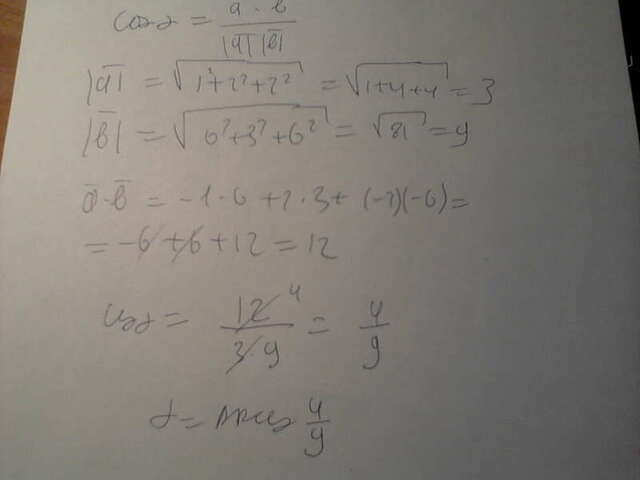 cos α = a · b / |a| |b|
|a̅| = √(1² + 2² + 2²) = √(1+4+4) = 3
|b̅| = √(6² + 3² + 6²) = √81 = 9
a̅ · b̅ = -1 · 6 + 2 · 3 + (-2)(-6) =
= -6 + 6 + 12 = 12
cos α = 12 4 / 3 · 9 = 4/9
α = arccos 4/9